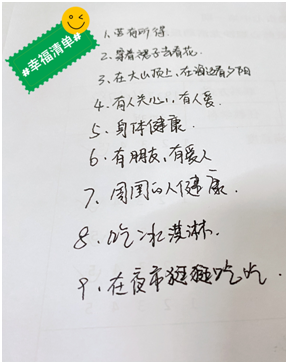 #幸福清单#
1、学有所得.
2、穿着裙子去看花.
3、在大山顶上，在海边看夕阳
4、有人关心、有人爱.
5、身体健康.
6、有朋友，有爱人
7、周围的人健康.
8、吃冰淇淋.
9、在夜市狂狂吃吃.